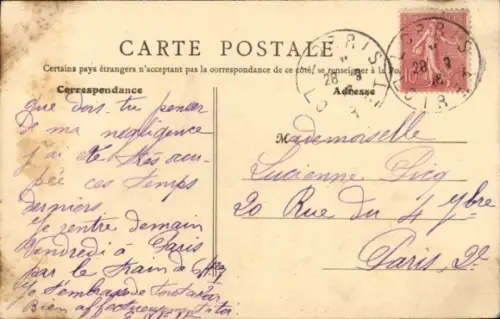 CARTE POSTALE
Certains pays étrangers n'acceptant pas la correspondance de ce côté, se renseigner à la
Correspondance
Adresse
que dois-tu penser
de ma négligence
j'ai été très occu-
pée ces temps
derniers
Je rentre demain
Vendredi à Paris
par le train de
Je t'embrasse
Bien affectueusement à toi
Mademoiselle
Lucienne Picq
20 Rue du 4 7bre
Paris, 2e
28
28